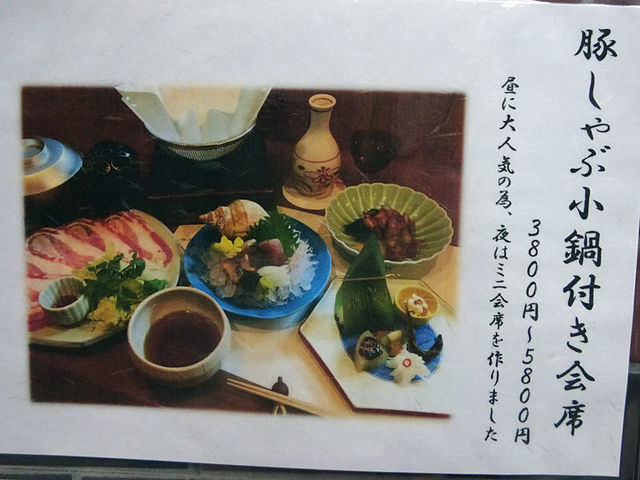 豚しゃぶ小鍋付き会席
3800円~5800円
昼に大人気の為、夜はミニ会席を作りました